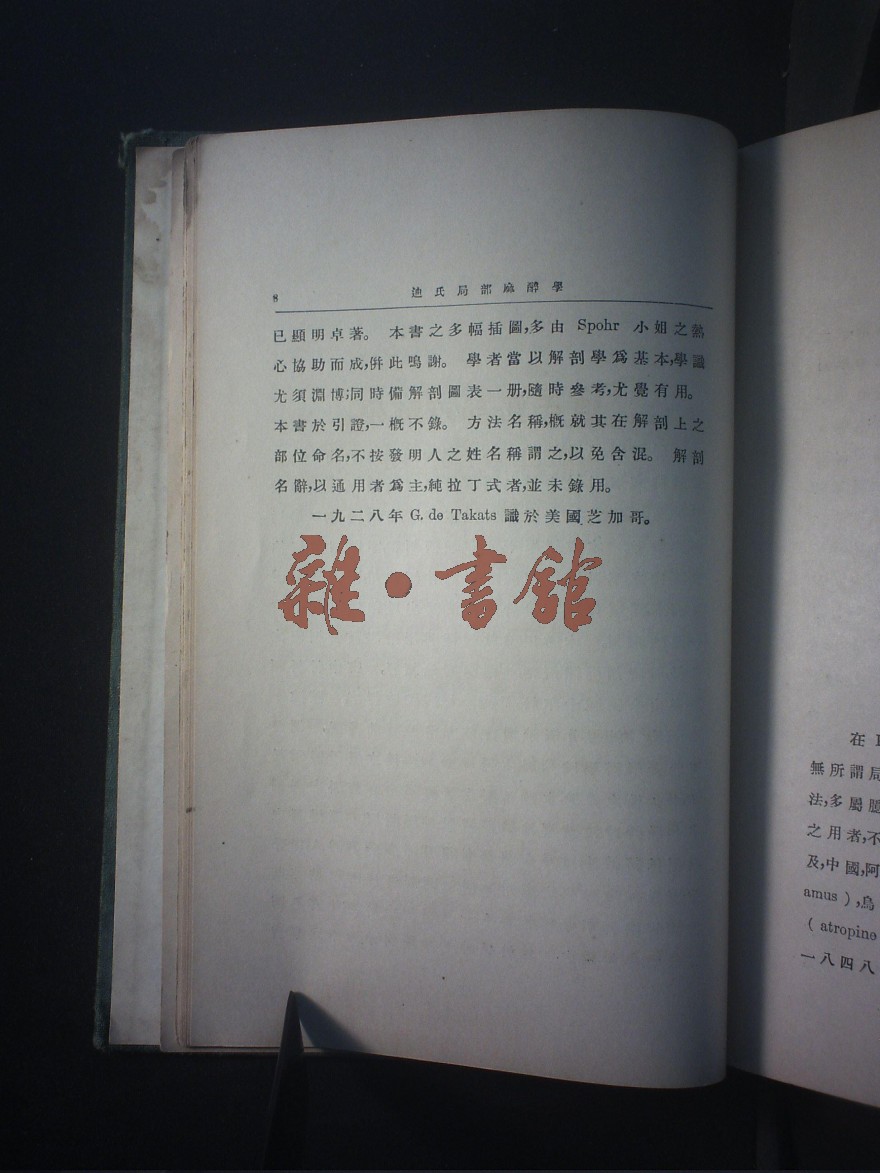 8
迪氏局部麻醉學
已顯明卓著。 本書之多幅插圖,多由 Spohr 小姐之熱
心協助而成,併此鳴謝。 學者當以解剖學爲基本,學識
尤須淵博;同時備解剖圖表一册,隨時參考,尤覺有用。
本書於引證,一概不錄。 方法名稱,概就其在解剖上之
部位命名,不按發明人之姓名稱謂之,以免含混。 解剖
名辭,以通用者爲主,純拉丁式者,並未錄用。
一九二八年 G. de Takats 識於美國芝加哥。
雜·書館
在
無所謂局
法,多屬臆
之用者,不
及,中國,阿
amus),烏
(atropine
一八四八